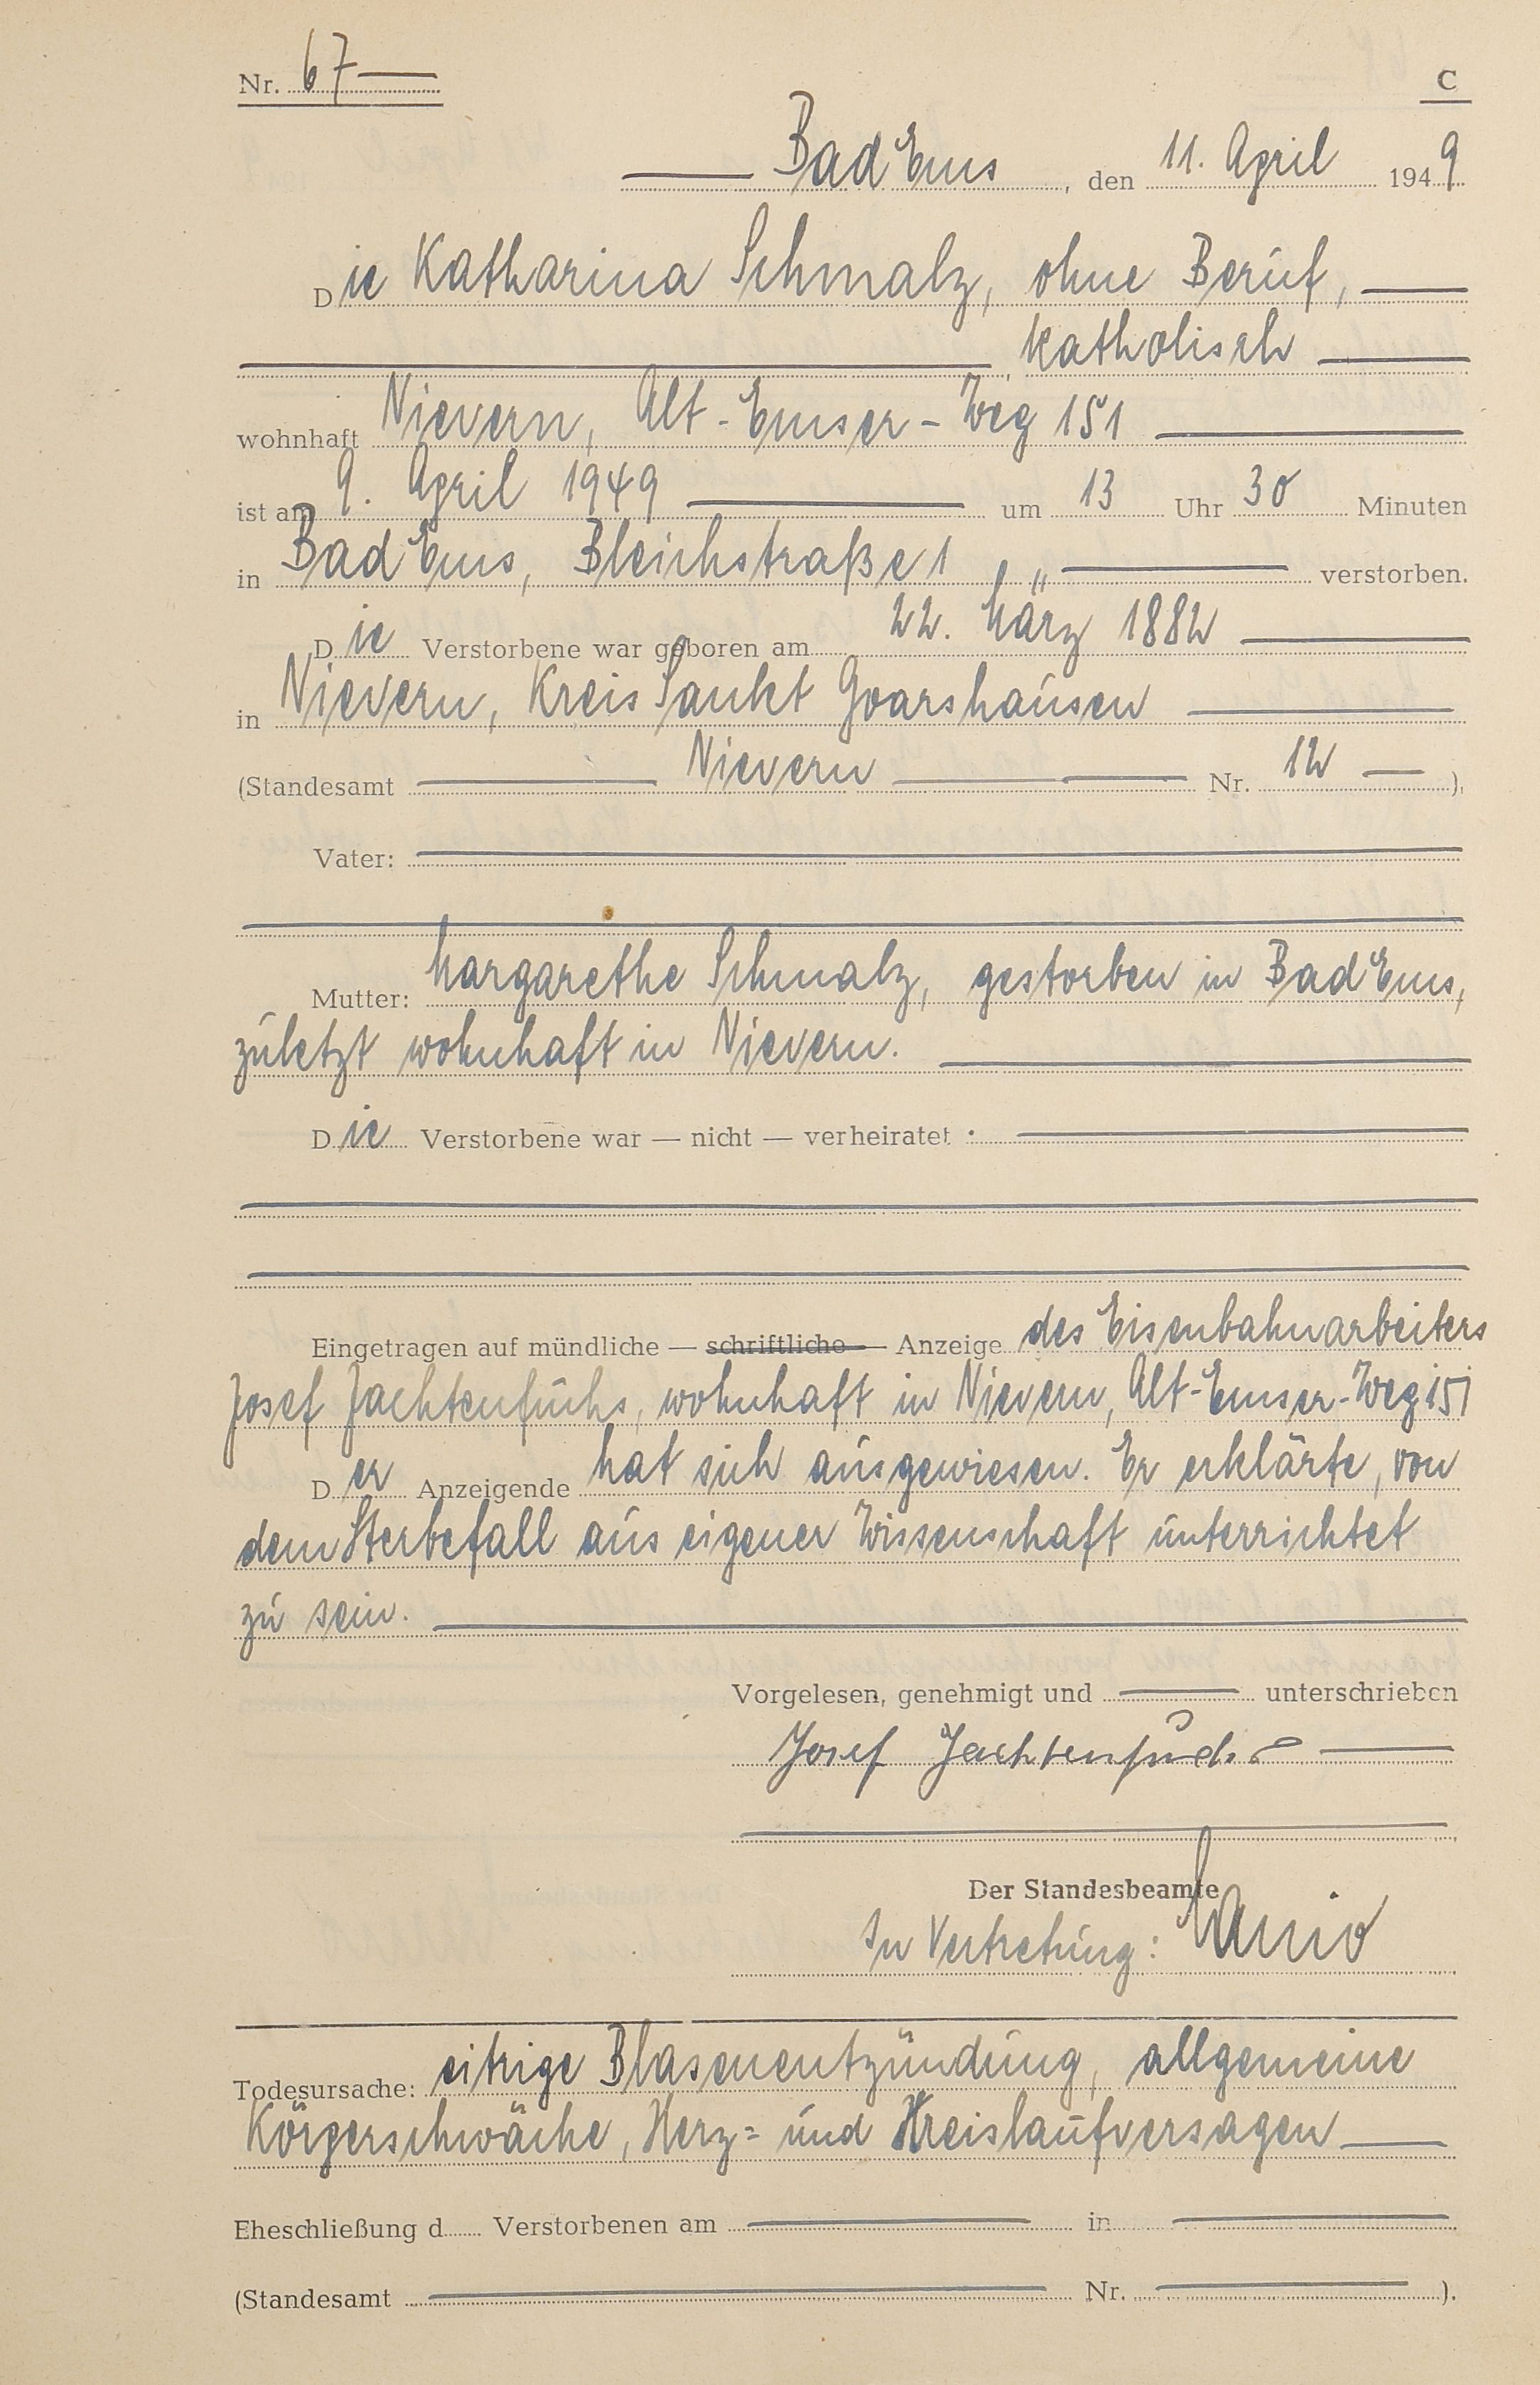 Nr. 67
C
Bad Ems, den 11. April 1949
Die Katharina Schmalz, ohne Beruf,
katholisch
wohnhaft Nievern, Alt-Emser-Weg 151
ist am 9. April 1949 um 13 Uhr 30 Minuten
in Bad Ems, Bleichstraße 1, „ verstorben.
Die Verstorbene war geboren am 22. März 1882
in Nievern, Kreis Sankt Goarshausen
(Standesamt Nievern Nr. 12 ).
Vater:
Mutter: Margarethe Schmalz, gestorben in Bad Ems,
zuletzt wohnhaft in Nievern.
Die Verstorbene war — nicht — verheiratet.
Eingetragen auf mündliche — schriftliche — Anzeige des Eisenbahnarbeiters
Josef Jachtenfuchs, wohnhaft in Nievern, Alt-Emser-Weg 151
Der Anzeigende hat sich ausgewiesen. Er erklärte, von
dem Sterbefall aus eigener Wissenschaft unterrichtet
zu sein.
Vorgelesen, genehmigt und unterschrieben
Josef Jachtenfuchs
Der Standesbeamte
In Vertretung:
Todesursache: eitrige Blasenentzündung, allgemeine
Körperschwäche, Herz= und Kreislaufversagen
Eheschließung d Verstorbenen am in
(Standesamt Nr. ).